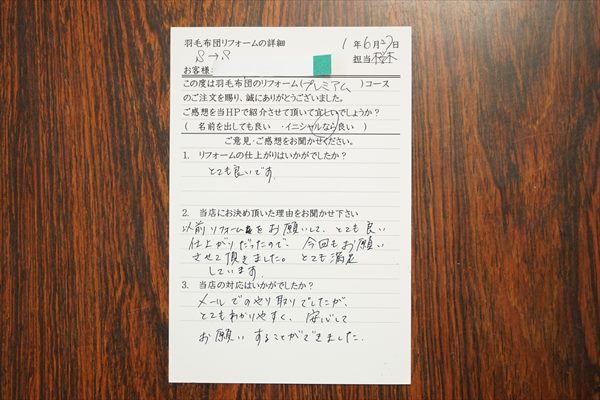 羽毛布団リフォームの詳細
1 年6月27日
S→S
担当 桜木
お客様:
この度は羽毛布団のリフォーム(プレミアム )コース
のご注文を賜り、誠にありがとうございました。
ご感想を当HPで紹介させて頂いて宜しいでしょうか?
( 名前を出しても良い ・イニシャルなら良い )
ご意見・ご感想をお聞かせください。
1. リフォームの仕上がりはいかがでしたか?
とても良いです。
2. 当店にお決め頂いた理由をお聞かせ下さい
以前リフォームをお願いして、とても良い
仕上がりだったので、今回もお願い
させて頂きました。とても満足
しています。
3. 当店の対応はいかがでしたか?
メールでのやり取りでしたが、
とてもわかりやすく、安心して
お願いすることができました。